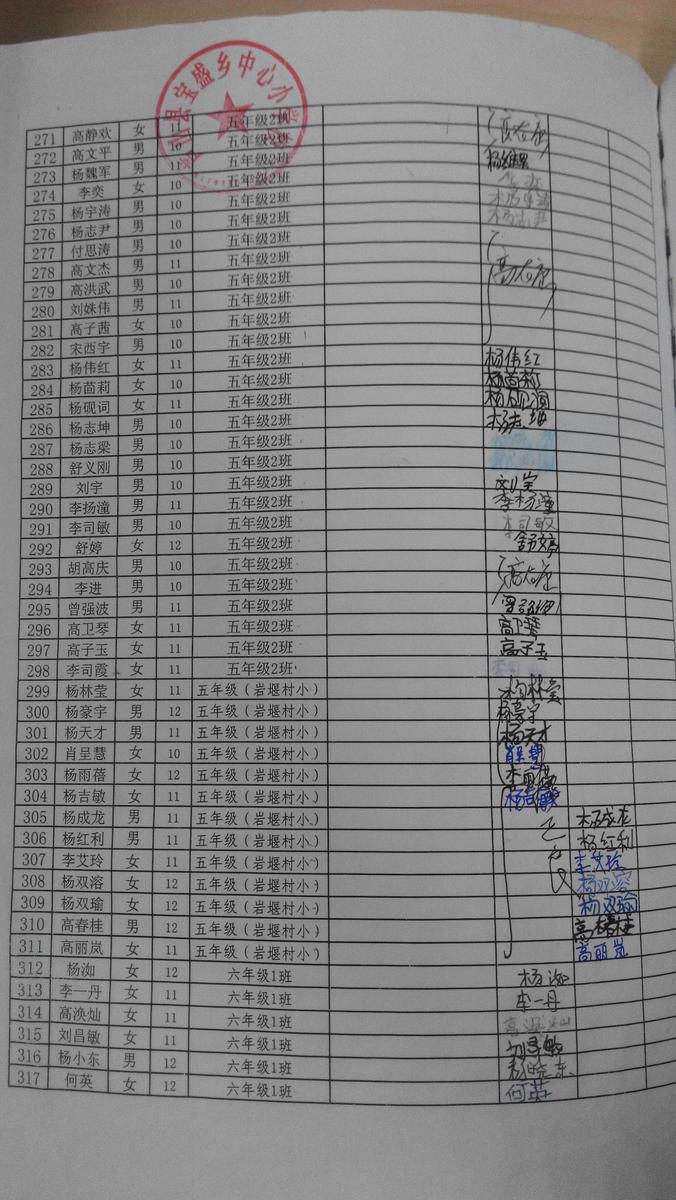 县宝盛乡中心小
271 高静欢 女 11 五年级2班
272 高文平 男 10 五年级2班
273 杨魏军 男 11 五年级2班
274 李奕 女 10 五年级2班
275 杨宇涛 男 10 五年级2班
276 杨志尹 男 10 五年级2班 杨志尹
277 付思涛 男 10 五年级2班
278 高文杰 男 11 五年级2班
279 高洪武 男 10 五年级2班
280 刘姝伟 男 11 五年级2班
281 高子茜 女 10 五年级2班
282 宋西宇 男 10 五年级2班
283 杨伟红 女 11 五年级2班 杨伟红
284 杨茴莉 女 10 五年级2班 杨茴莉
285 杨砚词 女 11 五年级2班 杨砚词
286 杨志坤 男 10 五年级2班 杨志坤
287 杨志梁 男 10 五年级2班
288 舒义刚 男 10 五年级2班
289 刘宇 男 10 五年级2班 刘宇
290 李扬潼 男 11 五年级2班 李杨潼
291 李司敏 男 10 五年级2班 李司敏
292 舒婷 女 12 五年级2班 舒婷
293 胡高庆 男 10 五年级2班
294 李进 男 10 五年级2班
295 曾强波 男 11 五年级2班
296 高卫琴 女 11 五年级2班 高卫琴
297 高子玉 女 11 五年级2班 高子玉
298 李司霞 女 11 五年级2班 李司
299 杨林莹 女 11 五年级（岩堰村小） 杨林莹
300 杨豪宇 男 12 五年级（岩堰村小） 杨豪宇
301 杨天才 男 11 五年级（岩堰村小） 杨天才
302 肖呈慧 女 10 五年级（岩堰村小） 肖呈慧
303 杨雨蓓 女 12 五年级（岩堰村小）
304 杨吉敏 女 11 五年级（岩堰村小） 杨吉敏
305 杨成龙 男 11 五年级（岩堰村小） 杨成龙
306 杨红利 男 11 五年级（岩堰村小） 杨红利
307 李艾玲 女 11 五年级（岩堰村小） 李艾玲
308 杨双溶 女 12 五年级（岩堰村小） 杨双溶
309 杨双瑜 女 12 五年级（岩堰村小） 杨双瑜
310 高春桂 男 12 五年级（岩堰村小） 高椿桂
311 高丽岚 女 11 五年级（岩堰村小） 高丽岚
312 杨洳 女 12 六年级1班 杨洳
313 李一丹 女 11 六年级1班 李一丹
314 高涣灿 女 11 六年级1班
315 刘昌敏 女 11 六年级1班 刘昌敏
316 杨小东 男 12 六年级1班 杨晓东
317 何英 女 12 六年级1班 何英